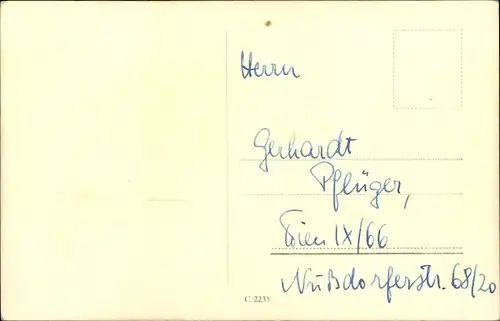 Herrn
Gerhardt
Pflüger,
Wien IX/66
Nußdorferstr. 68/20
C. 2235